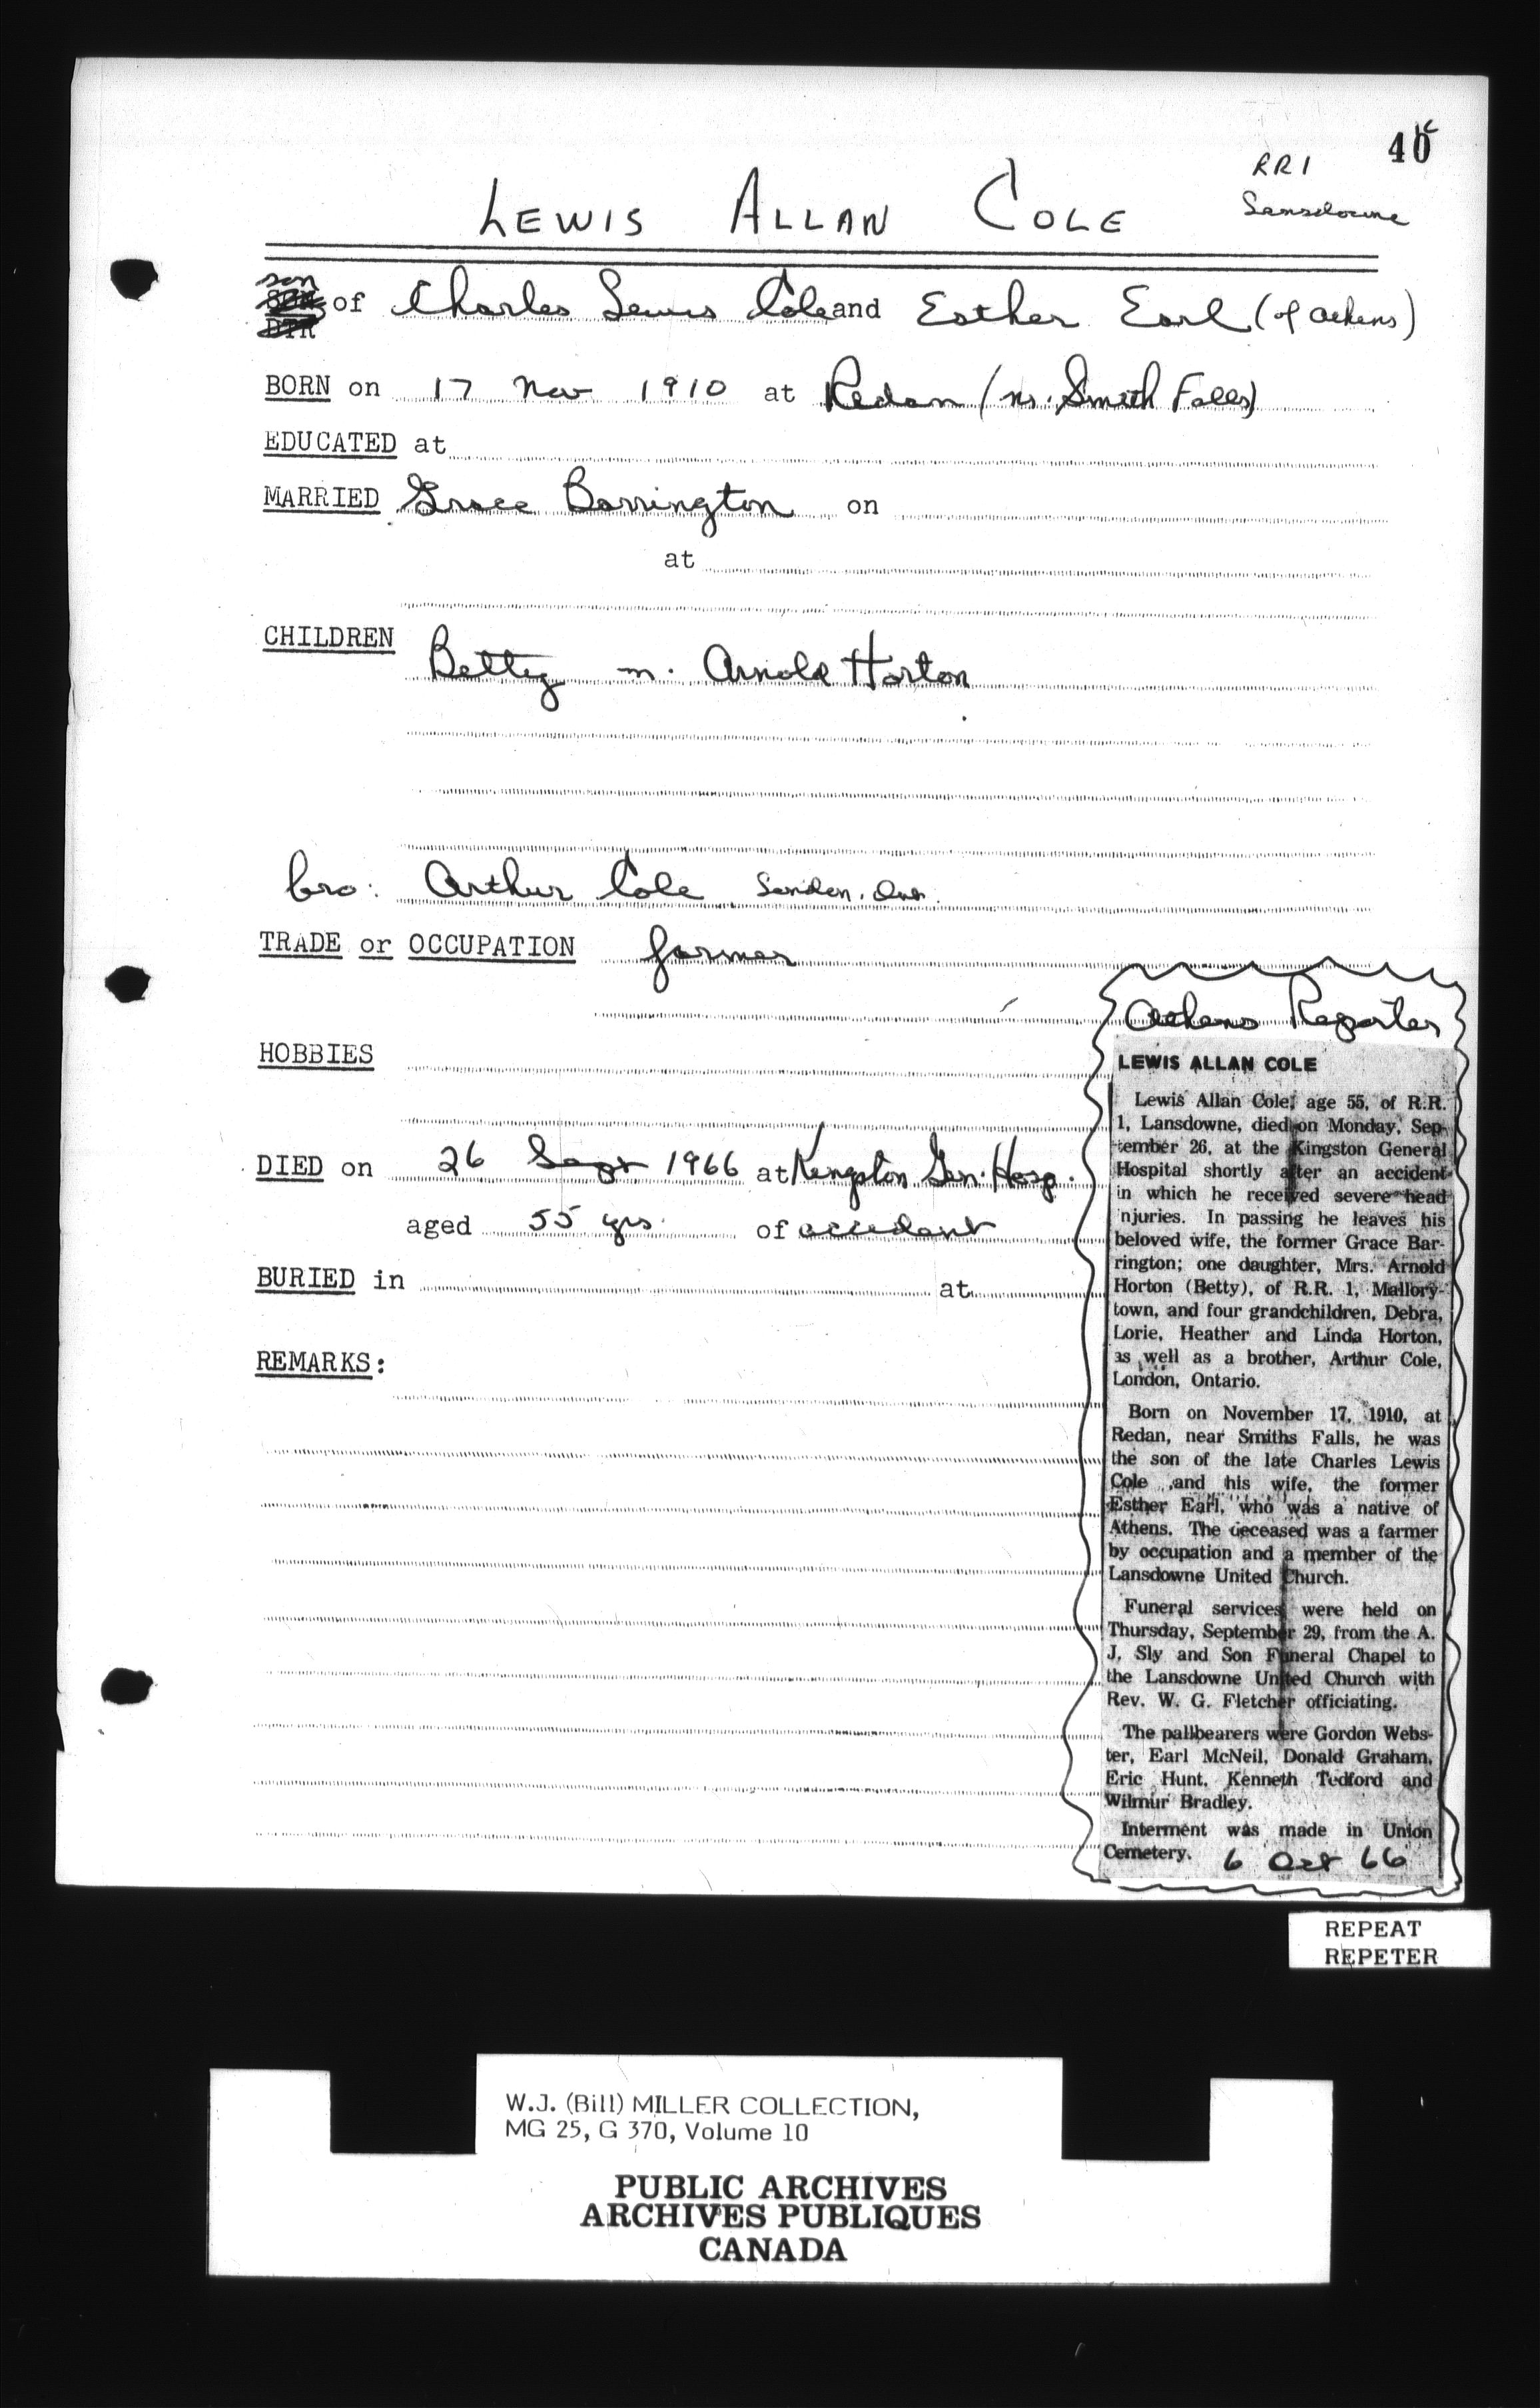 40
RR1
Lansdowne
LEWIS ALLAN COLE
son
of Charles Lewis Cole and Esther Earl (of Athens)
DTR
BORN on 17 Nov 1910 at Redan (nr. Smith Falls)
EDUCATED at
MARRIED Grace Barrington on
at
CHILDREN
Betty m. Arnold Horton
bro: Arthur Cole London. Ont.
TRADE or OCCUPATION farmer
Athens Reporter
HOBBIES
DIED on 26 Sept 1966 at Kingston Gen. Hosp.
aged 55 yrs. of accident
BURIED in at
REMARKS:
LEWIS ALLAN COLE
Lewis Allan Cole, age 55, of R.R.
1, Lansdowne, died on Monday, Sep-
tember 26, at the Kingston General
Hospital shortly after an accident
in which he received severe head
njuries. In passing he leaves his
beloved wife, the former Grace Bar-
rington; one daughter, Mrs. Arnold
Horton (Betty), of R.R. 1, Mallory-
town, and four grandchildren, Debra,
Lorie, Heather and Linda Horton,
as well as a brother, Arthur Cole,
London, Ontario.
Born on November 17, 1910, at
Redan, near Smiths Falls, he was
the son of the late Charles Lewis
Cole and his wife, the former
Esther Earl, who was a native of
Athens. The deceased was a farmer
by occupation and a member of the
Lansdowne United Church.
Funeral services were held on
Thursday, September 29, from the A.
J. Sly and Son Funeral Chapel to
the Lansdowne United Church with
Rev. W. G. Fletcher officiating.
The pallbearers were Gordon Webs-
ter, Earl McNeil, Donald Graham,
Eric Hunt, Kenneth Tedford and
Wilmur Bradley.
Interment was made in Union
Cemetery. 6 Oct 66
REPEAT
REPETER
W.J. (Bill) MILLER COLLECTION,
MG 25, G 370, Volume 10
PUBLIC ARCHIVES
ARCHIVES PUBLIQUES
CANADA